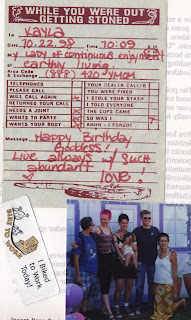 WHILE YOU WERE OUT
GETTING STONED
To KAYLA
Date 10.22.98 Time 10:09
M Lady of continuous enjoyment of
earthly living
Area Code
& Exchange (888) 420-YMOM
TELEPHONED YOUR DEALER CALLED
PLEASE CALL YOU WERE FIRED
WILL CALL AGAIN I STOLE YOUR STASH
RETURNED YOUR CALL I TOLD EVERYONE
NEEDS A JOINT THE COPS CAME
WANTS TO PARTY SO WAS I
WANTS YOUR BODY AHHH ... I FORGOT
Message Happy Birthday
Goddess!
Live always w/ such
abundant
love!
BIKE TO WORK
I Biked
to Work
Today!